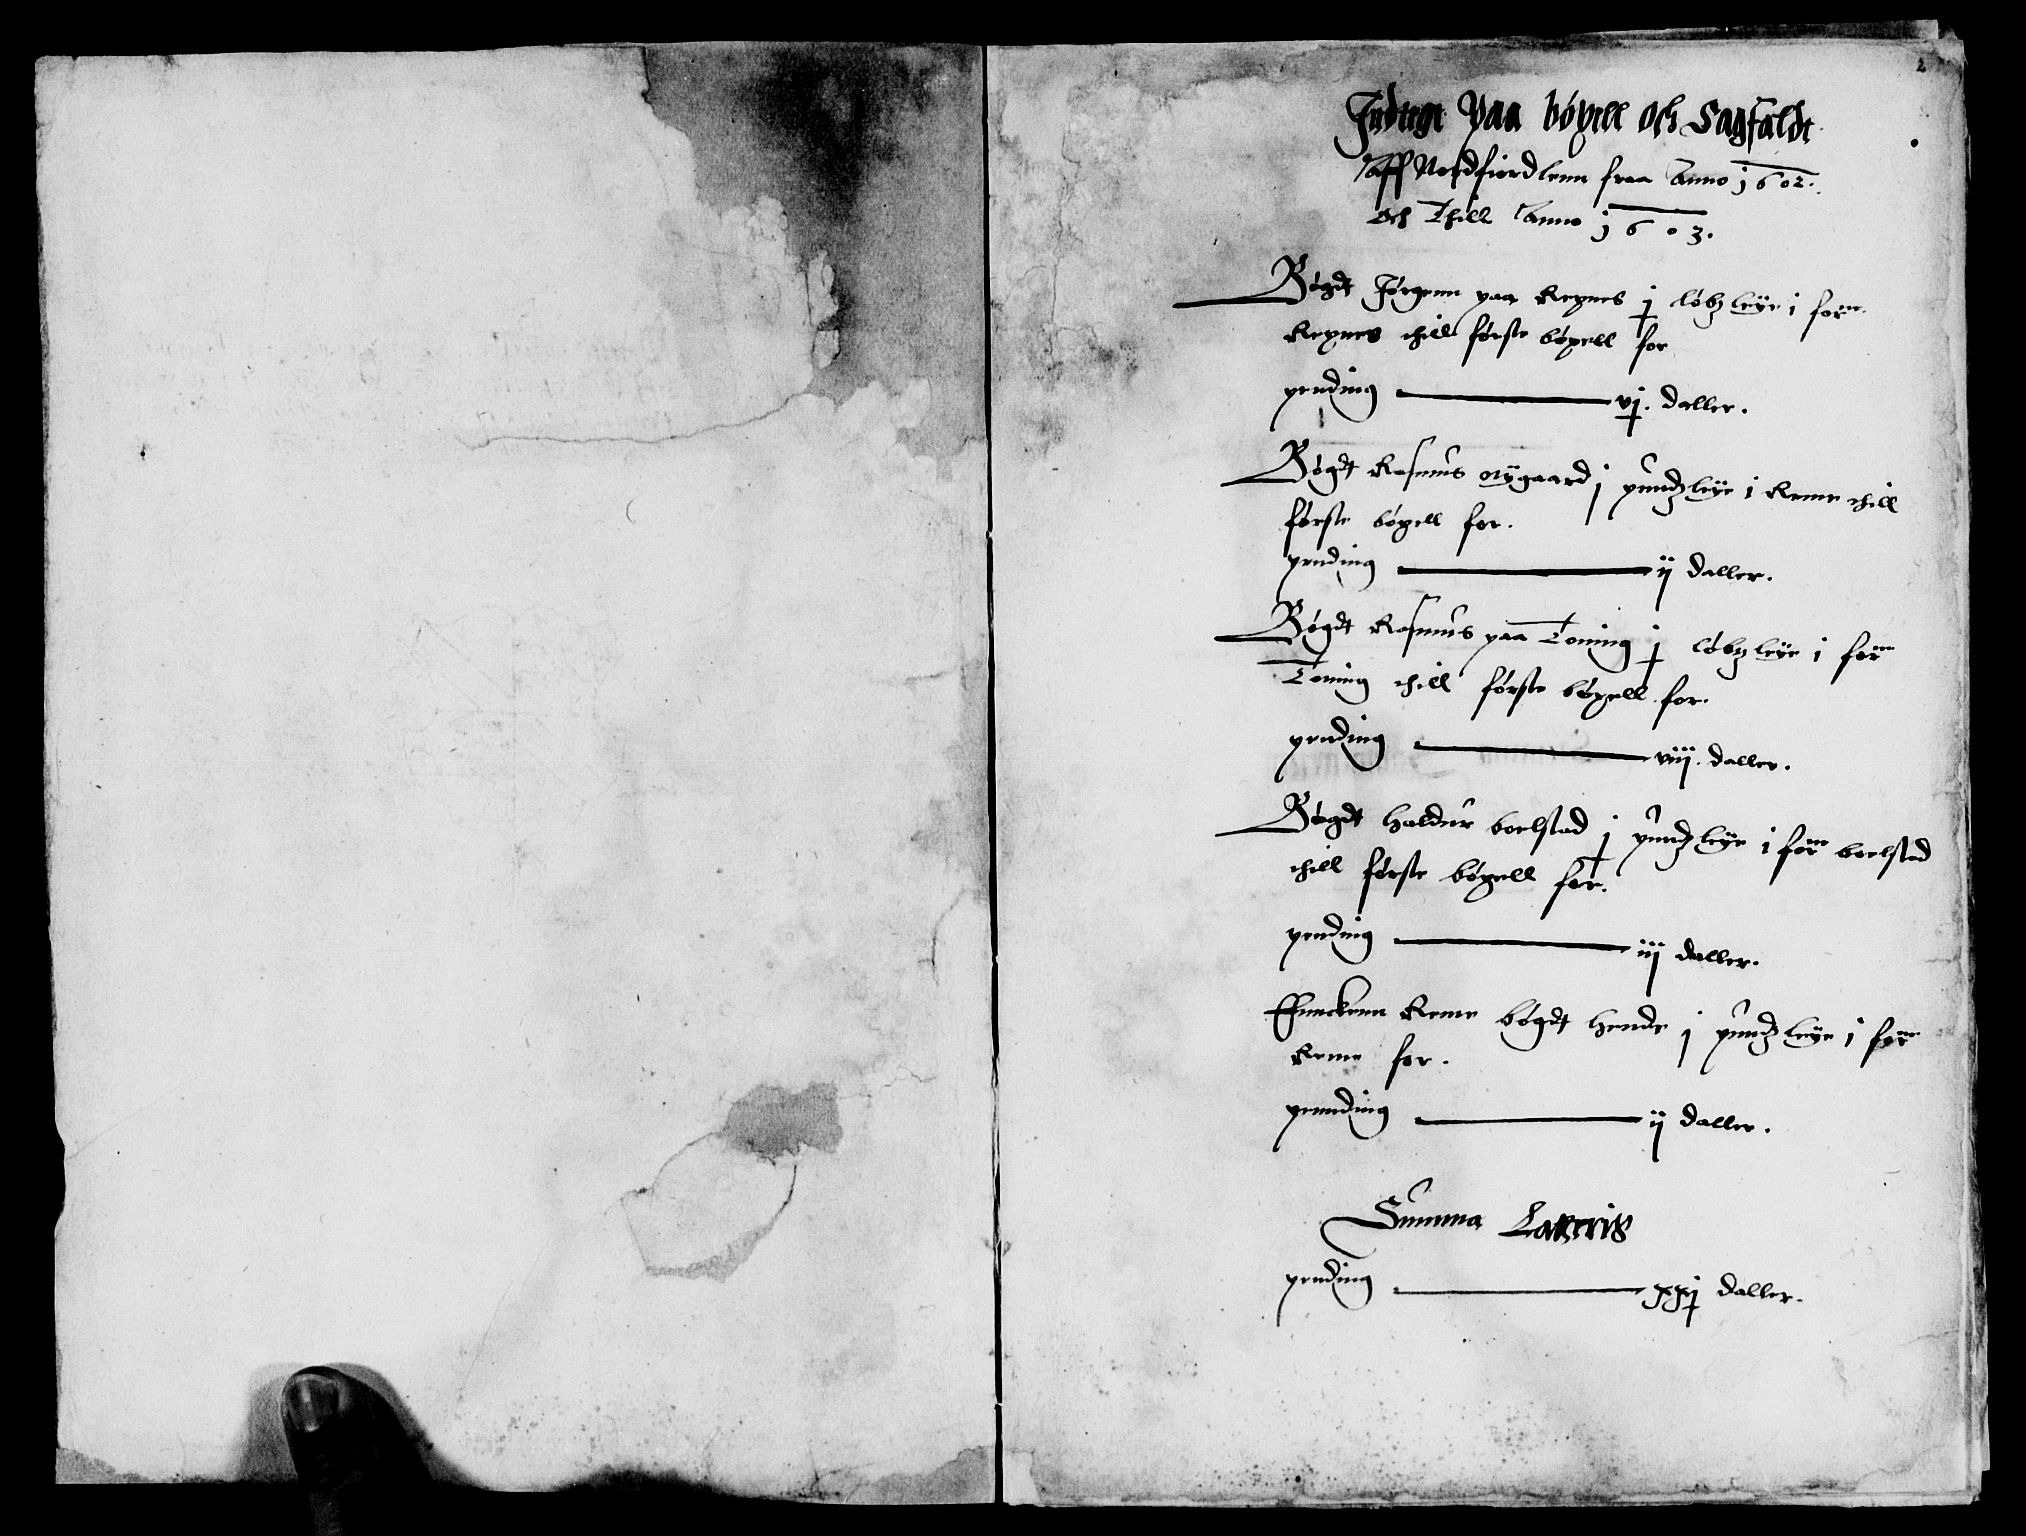 2
Indtegt paa bøxell och Sagfaldt
aff Nordfiord lenn fraa Anno j602.
och Thill Anno j603.
Bøgdt Jørgenn paa Rexnes j løbz leÿe i forne
Rexnes thill første bøxell for
pending vj. daller.
Bøgdt Rasmus Nÿgaard j pundz leÿe i Reme thill
første bøxell for.
pending ij daller.
Bøgdt Rasmus paa Toning j løbz leÿe i forne
Toning thill første bøxell for.
pending viij. daller.
Bøgdt Haldur boelstad j pundz leÿe i forne boelstad
thill første bøxell for.
pending iij daller.
Ennckenn Reme bøgdt hende j pundz leÿe i forne
Reme for.
pennding ij daller.
Summa Lateris
pending xxj daller.